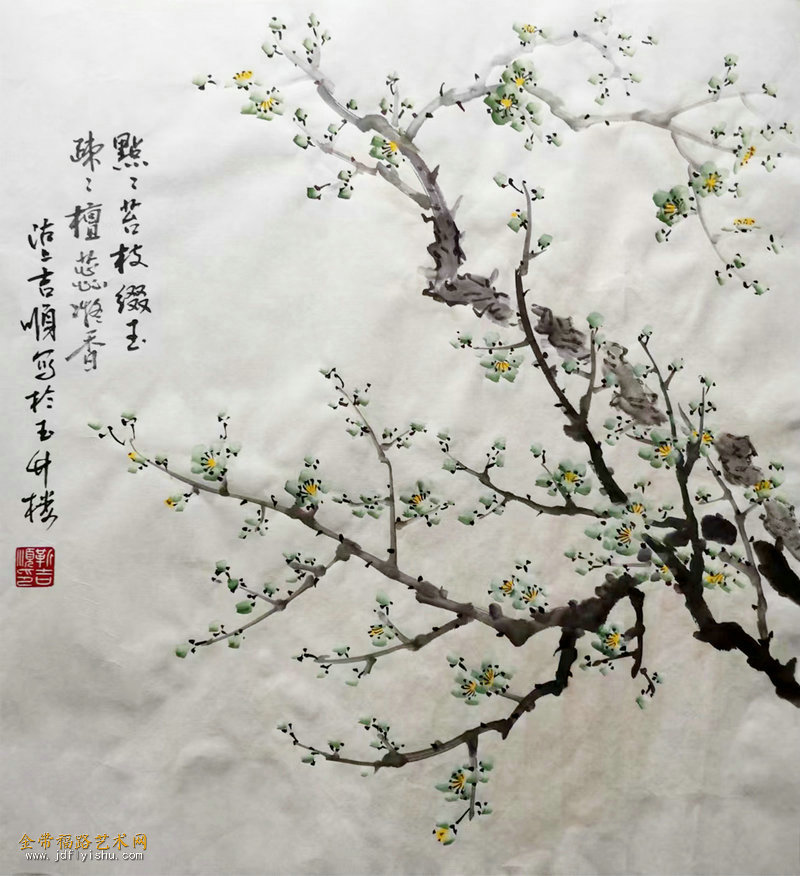 點〻苔枝綴玉
疎〻檀蕊凝香
沽上吉順寫於玉竹楼
靳吉順印
金带福路艺术网
www.jdflyishu.com